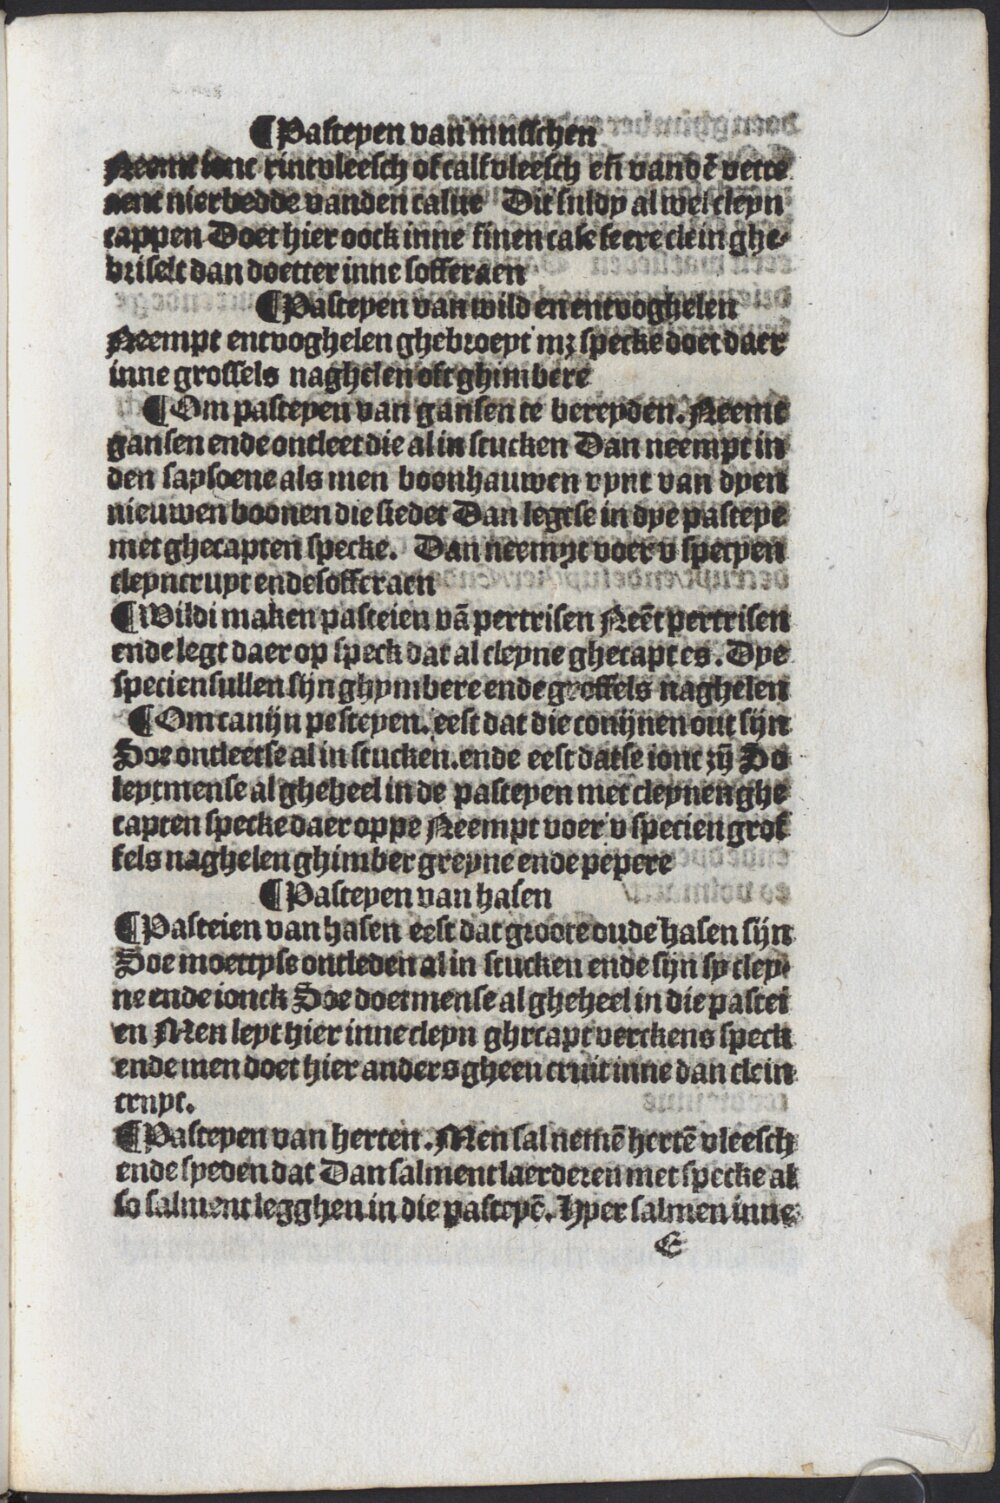 ¶Pasteyen van musschen
Neemt ionc rintvleesch oft calfvleesch eñ vandē vette
aent nierbedde vanden calue Dit suldy al wel cleyn
cappen Doet hier oock inne finen case seere clein ghe-
briselt dan doetter inne sofferaen
¶Pasteyen van wild en entvoghelen
Neempt entvoghelen ghebroeyt mz specke doet daer
inne groffels naghelen oft ghimbere
¶Om pasteyen van gansen te bereyden. Neemt
gansen ende ontleet die al in stucken Dan neempt in
den saysoene als men boonhauwen vynt van dyen
nieuwen boonen die siedet Dan legtse in dye pasteye
met ghecapten specke. Dan neempt voer v specyen
cleyncruyt ende sofferaen
¶Wildi maken pasteien vā pertrisen Neēt pertrisen
ende legt daer op speck dat al cleyne ghecapt es. Dye
specien sullen sijn ghymbere ende groffels naghelen
¶Om canijn pesteyen. eest dat die conijnen out sijn
Soe ontleetse al in stucken. ende eest datse ionc zij So
leytmense al gheheel in de pasteyen met cleynen ghe
capten specke daer oppe Neempt voer v specien grof
fels naghelen ghimber greyne ende pepere
¶Pasteyen van hasen
¶Pasteien van hasen eest dat groote oude hasen sijn
Soe moettyse ontleden al in stucken ende sijn sy cley-
ne ende ionck Soe doetmense al gheheel in die pastei
en Men leyt hier inne cleyn ghecapt verckens speck
ende men doet hier anders gheen cruit inne dan clein
cruyt.
¶Pasteyen van herten. Men sal nemē hertē vleesch
ende syeden dat Dan salment laerderen met specke al
so salment legghen in die pasteyē. Hyer salmen inne
E